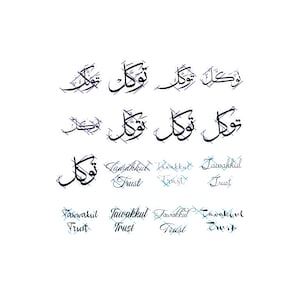 توكل توكل توكل توكل
توكل توكل توكل توكل
توكل Tawakkul Tawakkul Tawakkul
Trust Trust Trust
Tawakkul Tawakkul Tawakkul Tawakkul
Trust Trust Trust Trust